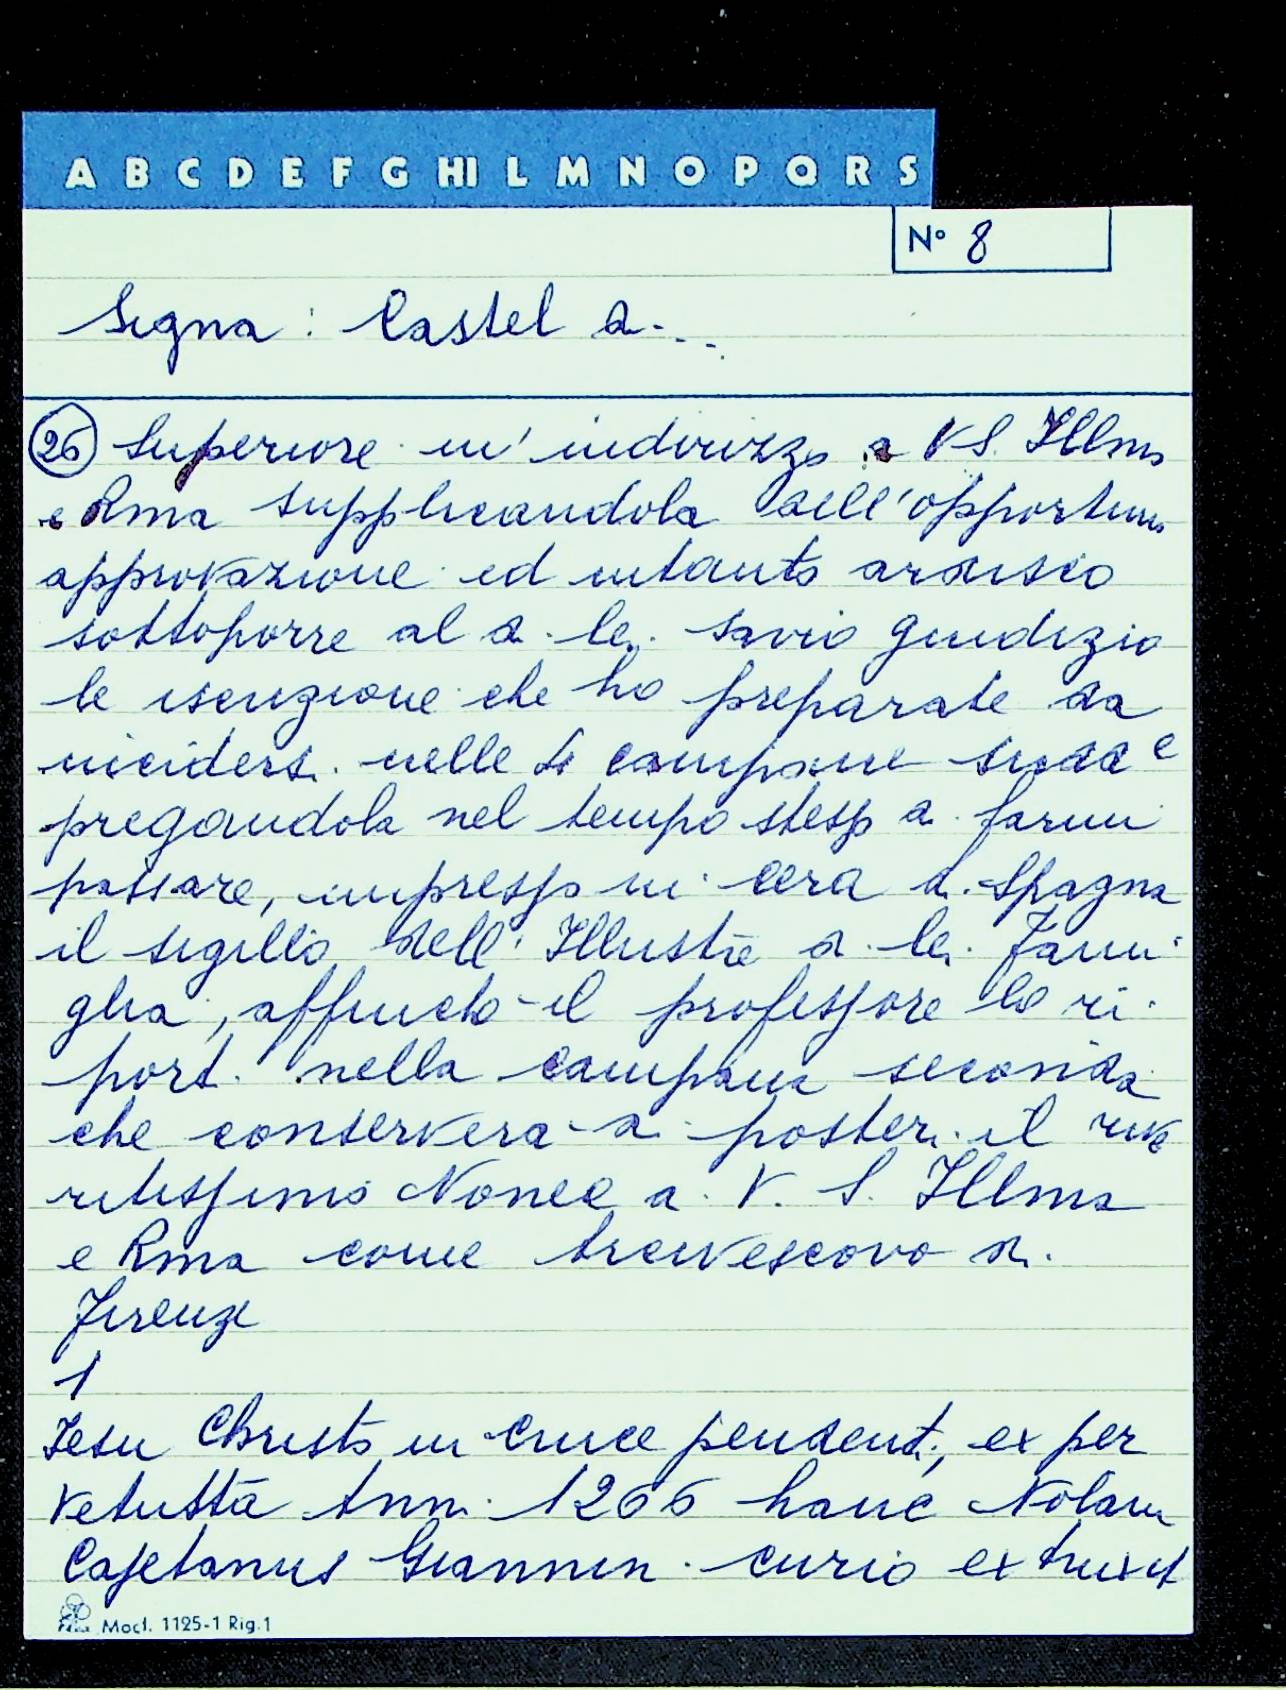 A B C D E F G HI L M N O P Q R S
N° 8
Signa: Castel di...
26 Superiore m'indirizzo a VS. Illma
e Rma supplicandola dell'opportuna
approvazione ed intanto ardisco
sottoporre al di lei savio giudizio
le iscrizione che ho preparate da
incidersi nelle 4 campane sudde
pregandola nel tempo stesso a farmi
passare, impresso in cera di Spagna
il sigillo dell'Illustre di lei Fami-
glia, affinché il professore lo ri-
porti nella campana seconda
che conserverà ai posteri il rive
ritissimo Nome di V. S. Illma
e Rma come Arcivescovo di
Firenze
1
Iesu Christo in cruce pendenti, ex per
vetusta Ann. 1266 hanc Nolam
Cajetanus Giannini curio extruxit
Mod. 1125-1 Rig.1